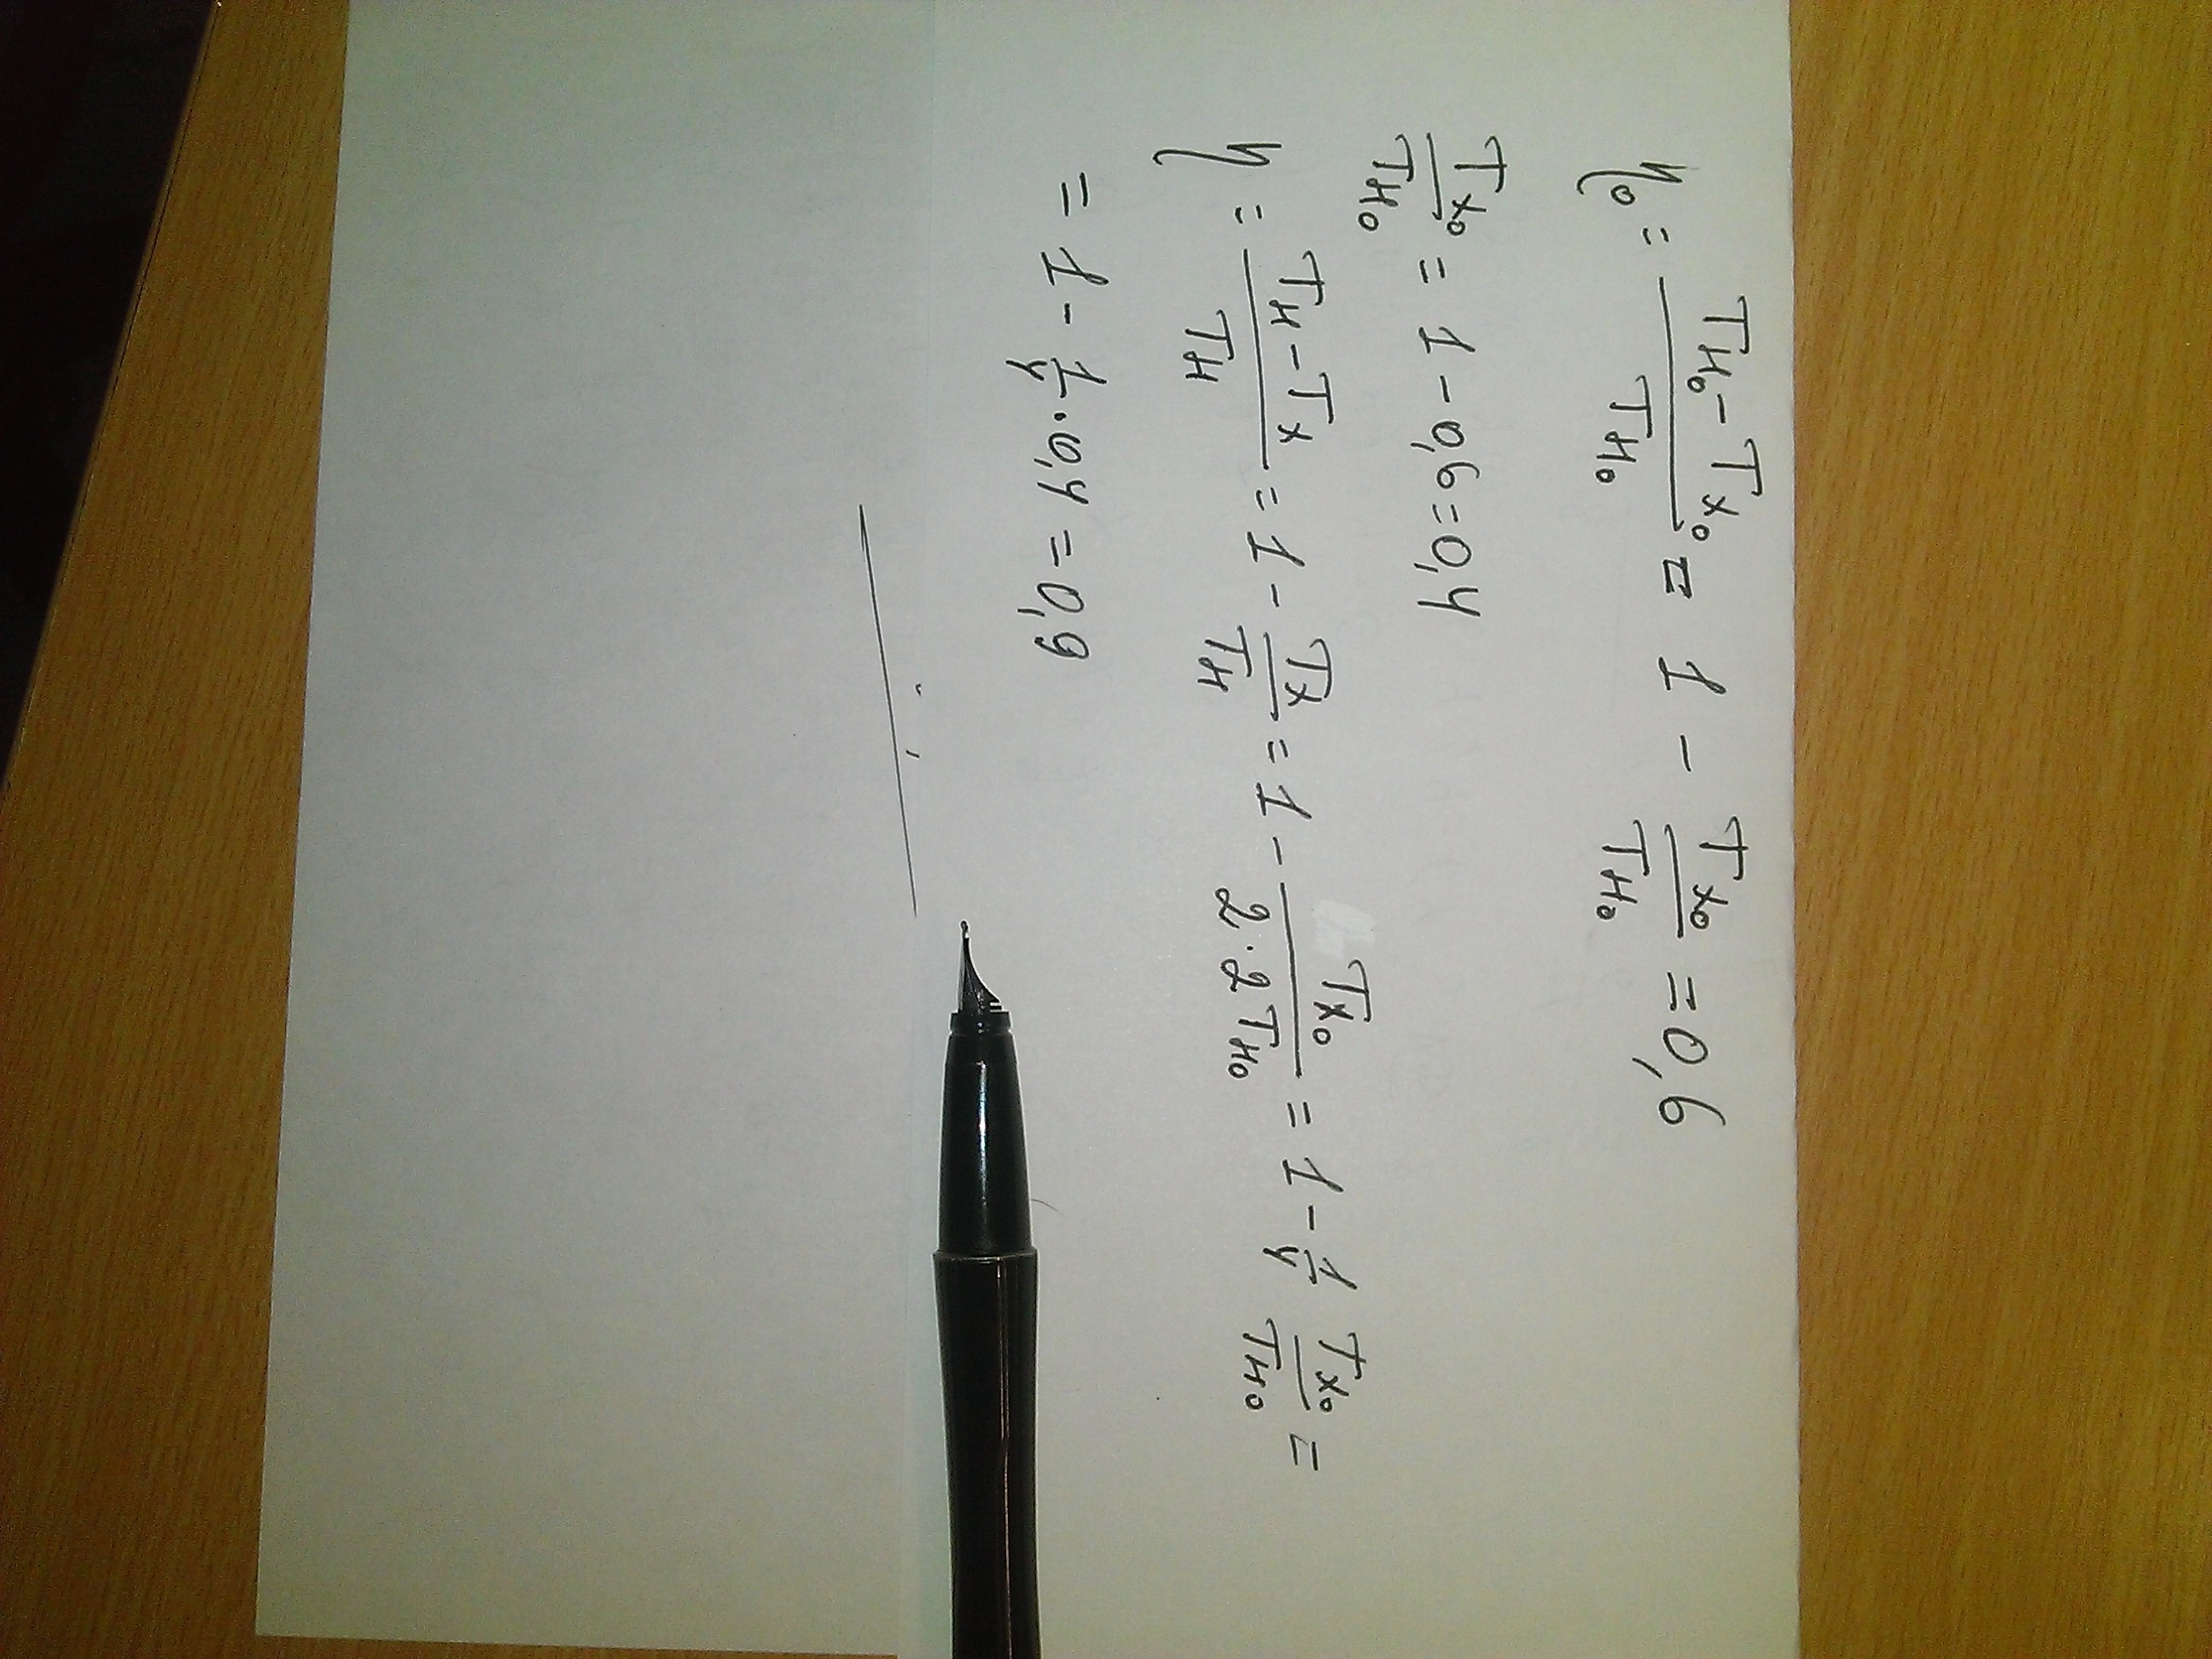 η₀ = (Tн₀ - Tx₀)/Tн₀ = 1 - Tx₀/Tн₀ = 0,6
Tx₀/Tн₀ = 1 - 0,6 = 0,4
η = (Tн - Tx)/Tн = 1 - Tx/Tн = 1 - Tx₀/(2·2Tн₀) = 1 - 1/4 Tx₀/Tн₀ =
= 1 - 1/4 · 0,4 = 0,9